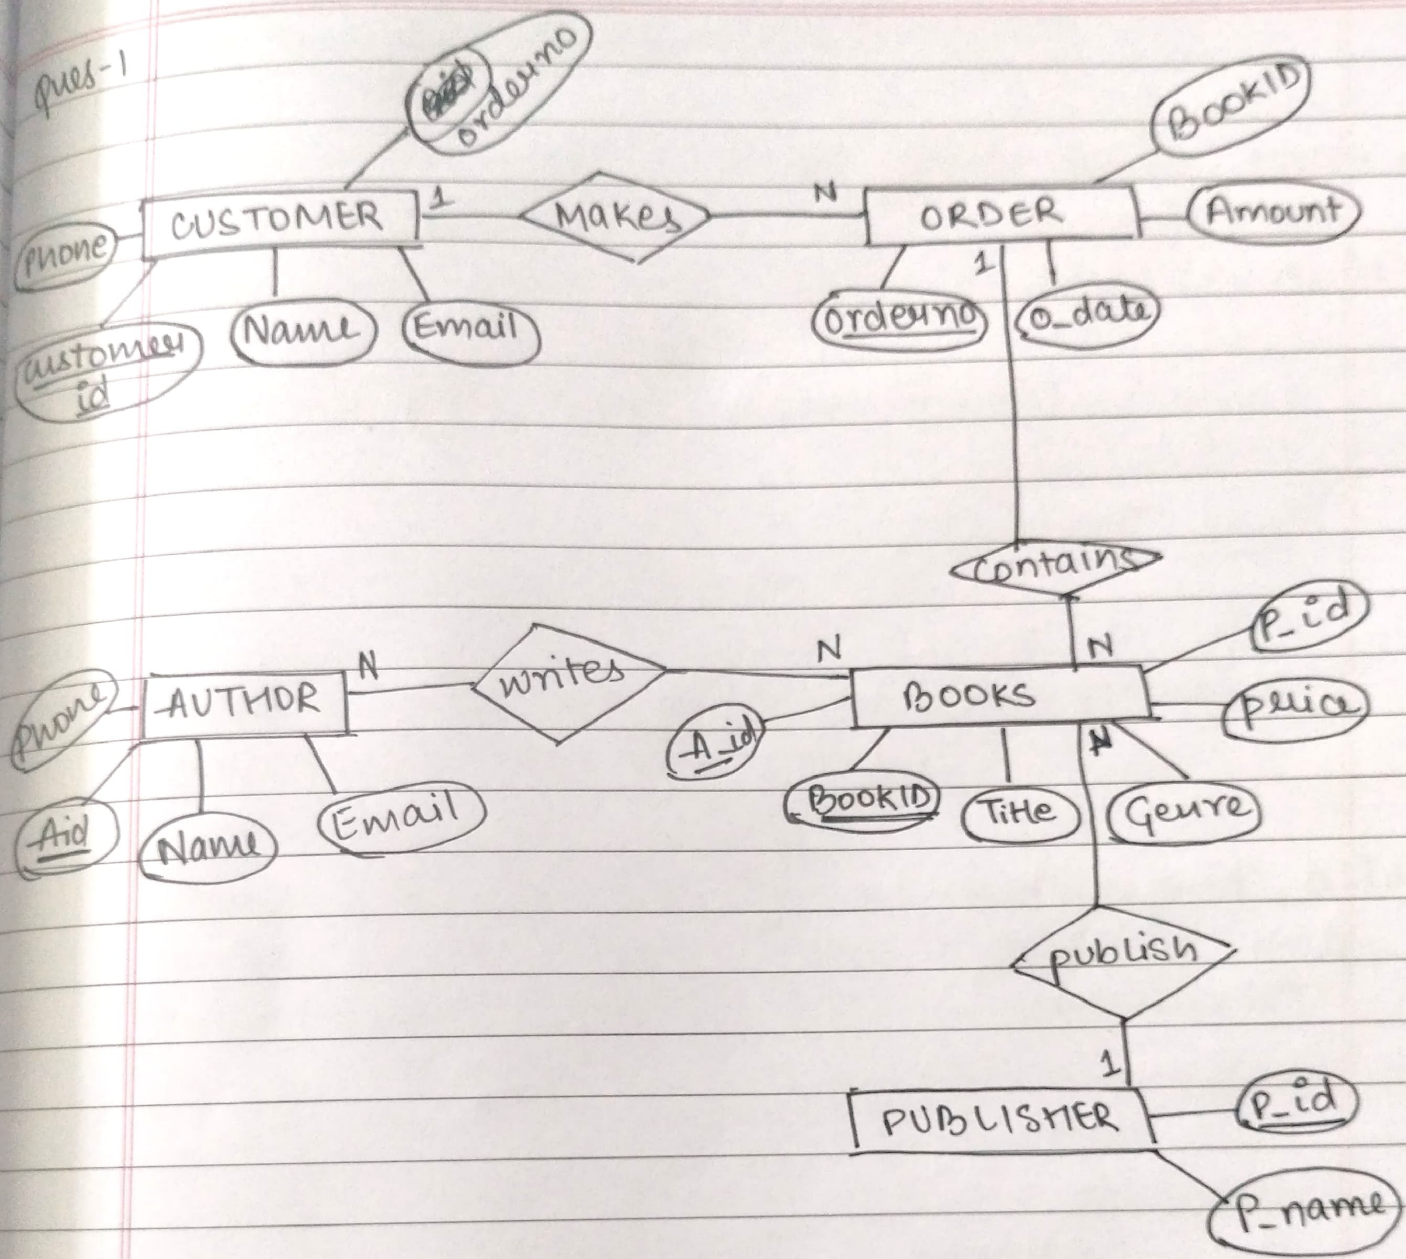 Ques-1
orderno
BookID
CUSTOMER
1
Makes
N
ORDER
Amount
Phone
1
customer
id
Name
Email
orderno
o_date
contains
P_id
N
N
N
writes
Phone
AUTHOR
BOOKS
price
A_id
N
Aid
Name
Email
BookID
Title
Genre
publish
1
PUBLISHER
P_id
P_name